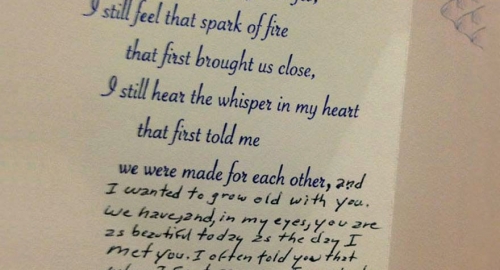 I still feel that spark of fire
that first brought us close,
I still hear the whisper in my heart
that first told me
we were made for each other, and
I wanted to grow old with you.
We have, and, in my eyes, you are
as beautiful today as the day I
met you. I often told you that